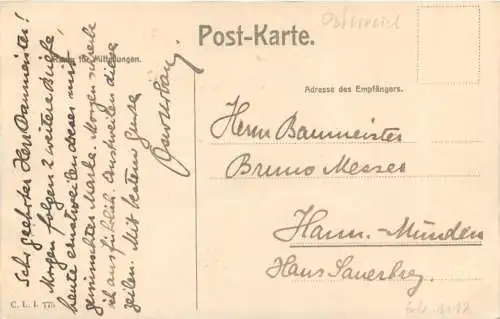 Österreich
Post-Karte.
Raum für Mitteilungen.
Adresse des Empfängers.
Sehr geehrter Herr Baumeister!
Morgen folgen 2 weitere Briefe
heute einstweilen dieses mit
gewünschter Marke. Morgen schreibe
ich ausführlich. Einstweilen diese
Zeilen. Mit bestem Gruss
Herrn Baumeister
Bruno Messer
Hann.-Münden
Haus Sauerberg.
C. L. L. 775